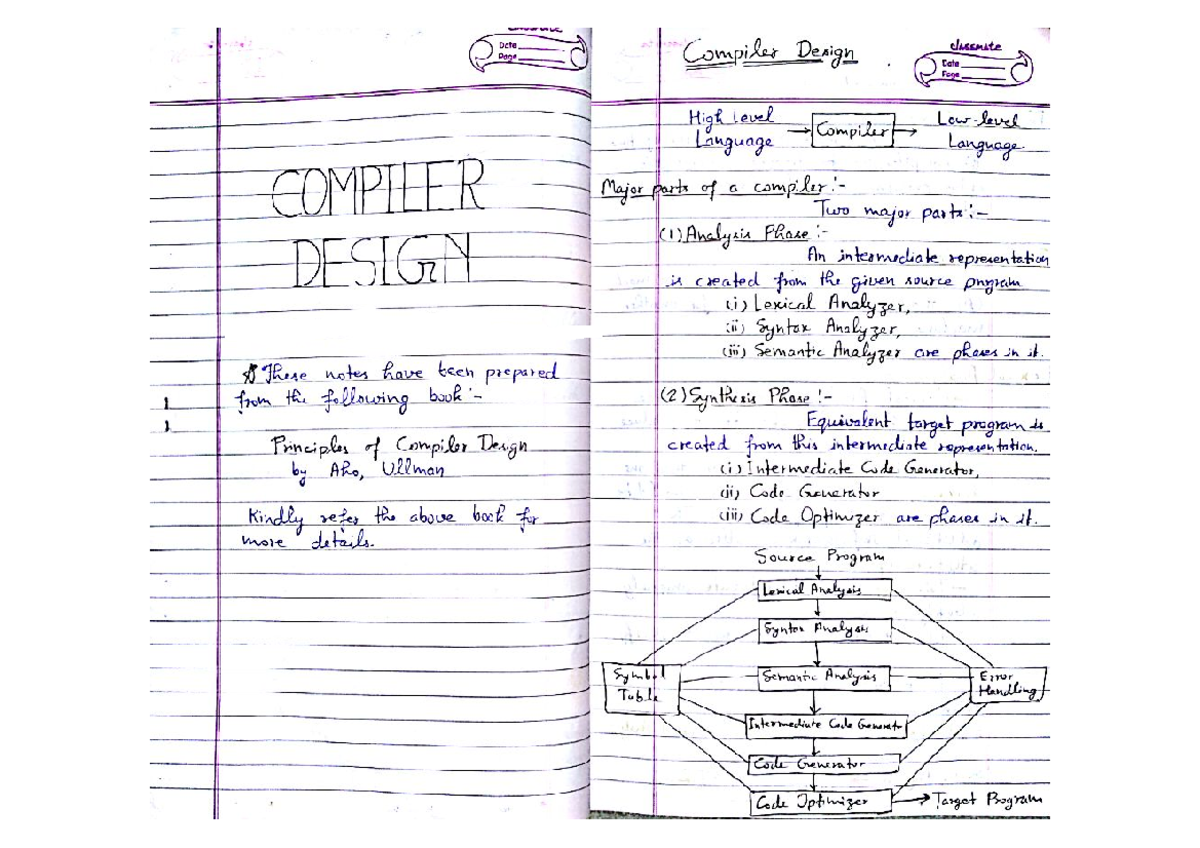 classmate
Date
Page
COMPILER
DESIGN
These notes have been prepared
from the following book :-
Principles of Compiler Design
by Aho, Ullman
Kindly refer the above book for
more details.
Compiler Design
classmate
Date
Page
High Level
Language
Compiler
Low-level
Language
Major parts of a compiler :-
Two major parts :-
(1) Analysis Phase :-
An intermediate representation
is created from the given source program
(i) Lexical Analyzer,
(ii) Syntax Analyzer,
(iii) Semantic Analyzer are phases in it.
(2) Synthesis Phase :-
Equivalent target program is
created from this intermediate representation.
(i) Intermediate Code Generator,
(ii) Code Generator
(iii) Code Optimizer are phases in it.
Source Program
Lexical Analysis
Syntax Analysis
Symbol
Table
Semantic Analysis
Error
Handling
Intermediate Code Generator
Code Generator
Code Optimizer
Target Program